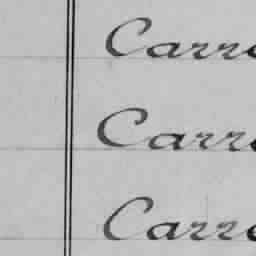 Carre
Carre
Carre